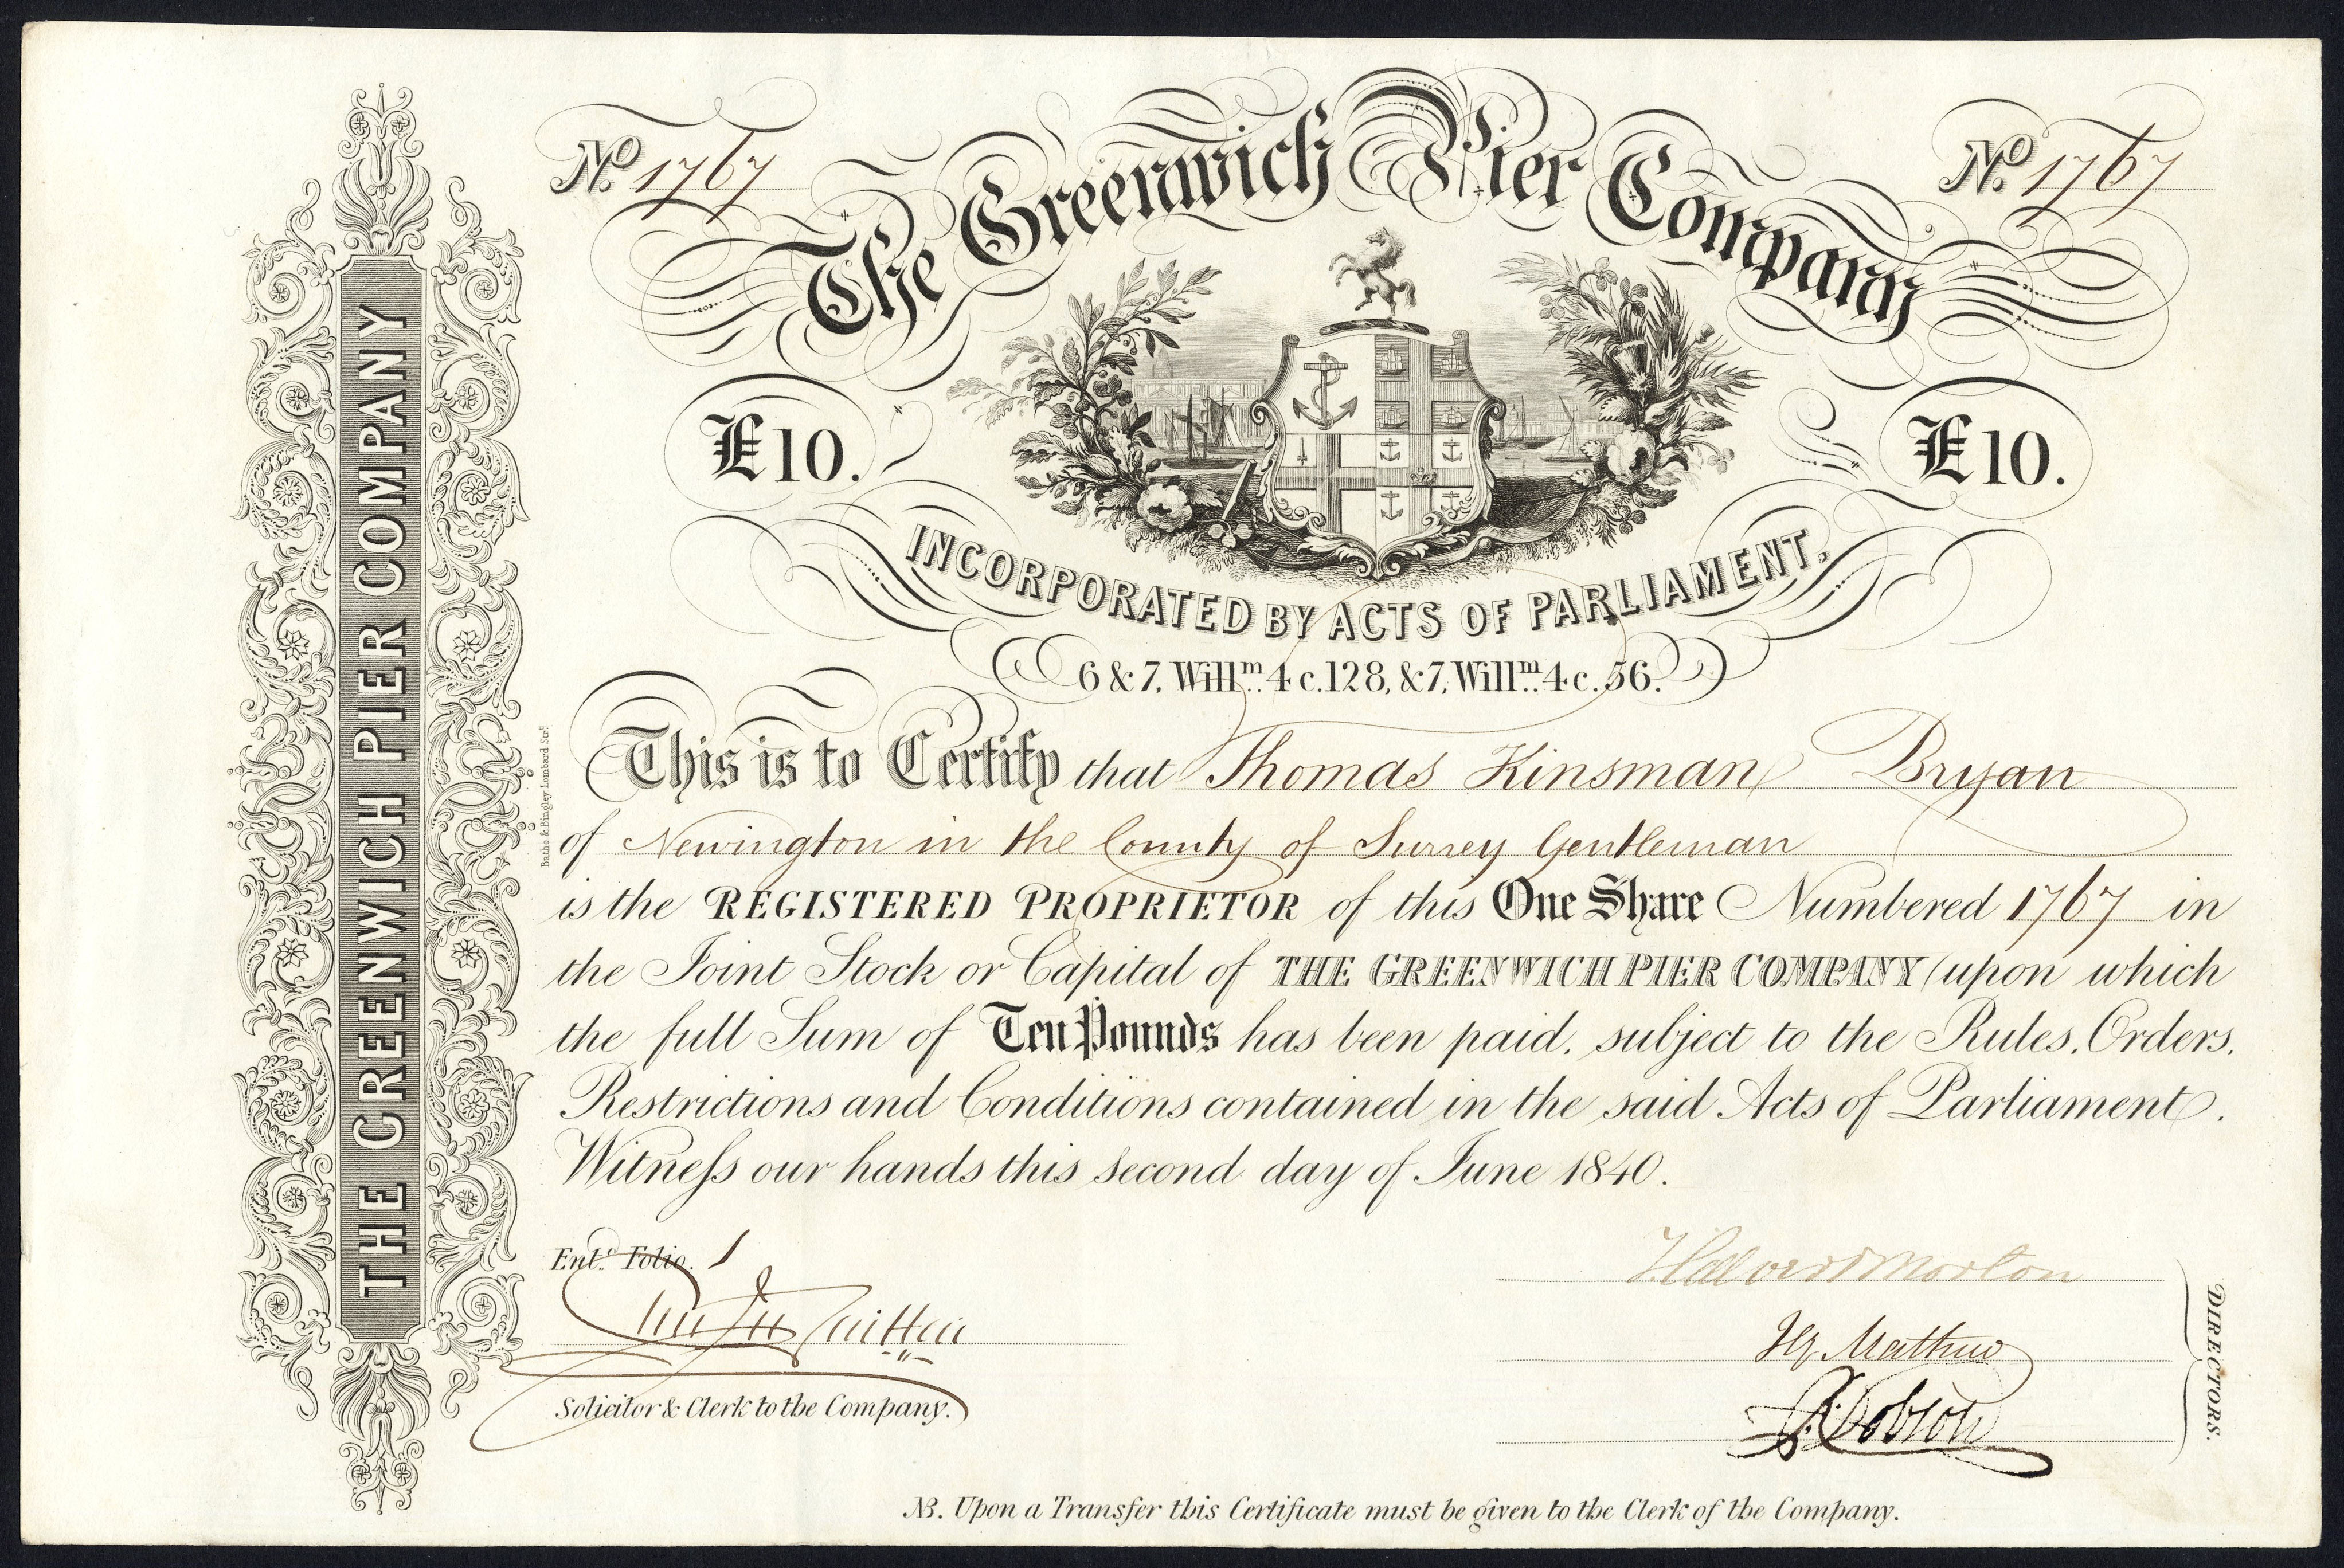 No. 1767
The Greenwich Pier Company
No. 1767
£10.
£10.
INCORPORATED BY ACTS OF PARLIAMENT.
6 & 7, Willm. 4 c. 128, & 7, Willm. 4 c. 56.
THE GREENWICH PIER COMPANY
Batho & Bingley, Lombard Str.
This is to Certify that Thomas Kinsman Bryan
of Newington in the County of Surrey Gentleman
is the REGISTERED PROPRIETOR of this One Share Numbered 1767 in
the Joint Stock or Capital of THE GREENWICH PIER COMPANY (upon which
the full Sum of Ten Pounds has been paid, subject to the Rules, Orders,
Restrictions and Conditions contained in the said Acts of Parliament.
Witneſs our hands this second day of June 1840.
Entd. Folio. 1
Solicitor & Clerk to the Company.
Morton
Hy. Mathew
Dobson
DIRECTORS.
NB. Upon a Transfer this Certificate must be given to the Clerk of the Company.